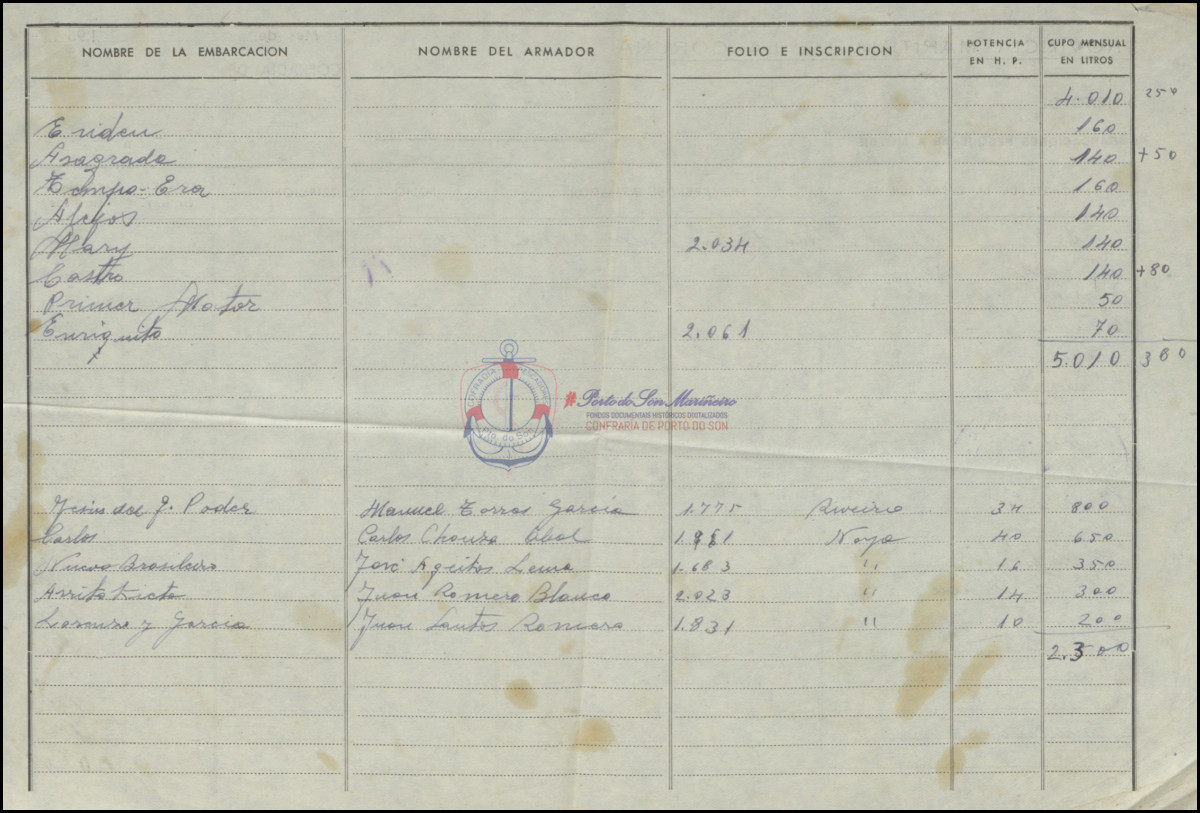 NOMBRE DE LA EMBARCACION NOMBRE DEL ARMADOR FOLIO E INSCRIPCION POTENCIA EN H. P. CUPO MENSUAL EN LITROS
4.010 250
160
Asagrado 140 +50
Era 160
140
Mary 2.034 140
Castro 140 +80
Primer Motor 50
Enriquito 2.061 70
5.010 380
COFRADÍA PESCADORES
Pto. do Son
#Porto do Son Mariñeiro
FONDOS DOCUMENTAIS HISTÓRICOS DIXITALIZADOS
CONFRARÍA DE PORTO DO SON
Jesús del G. Poder Manuel Torres García 1.775 Riveira 34 800
Carlos Carlos Chouza Abal Noya 40 650
Nuevo Brasileiro José Ageitos Lema 1.683 " 16 350
Juan Romero Blanco 2.023 " 14 300
Lorenzo y García Juan Santos Romero 1.831 " 10 200
2.300